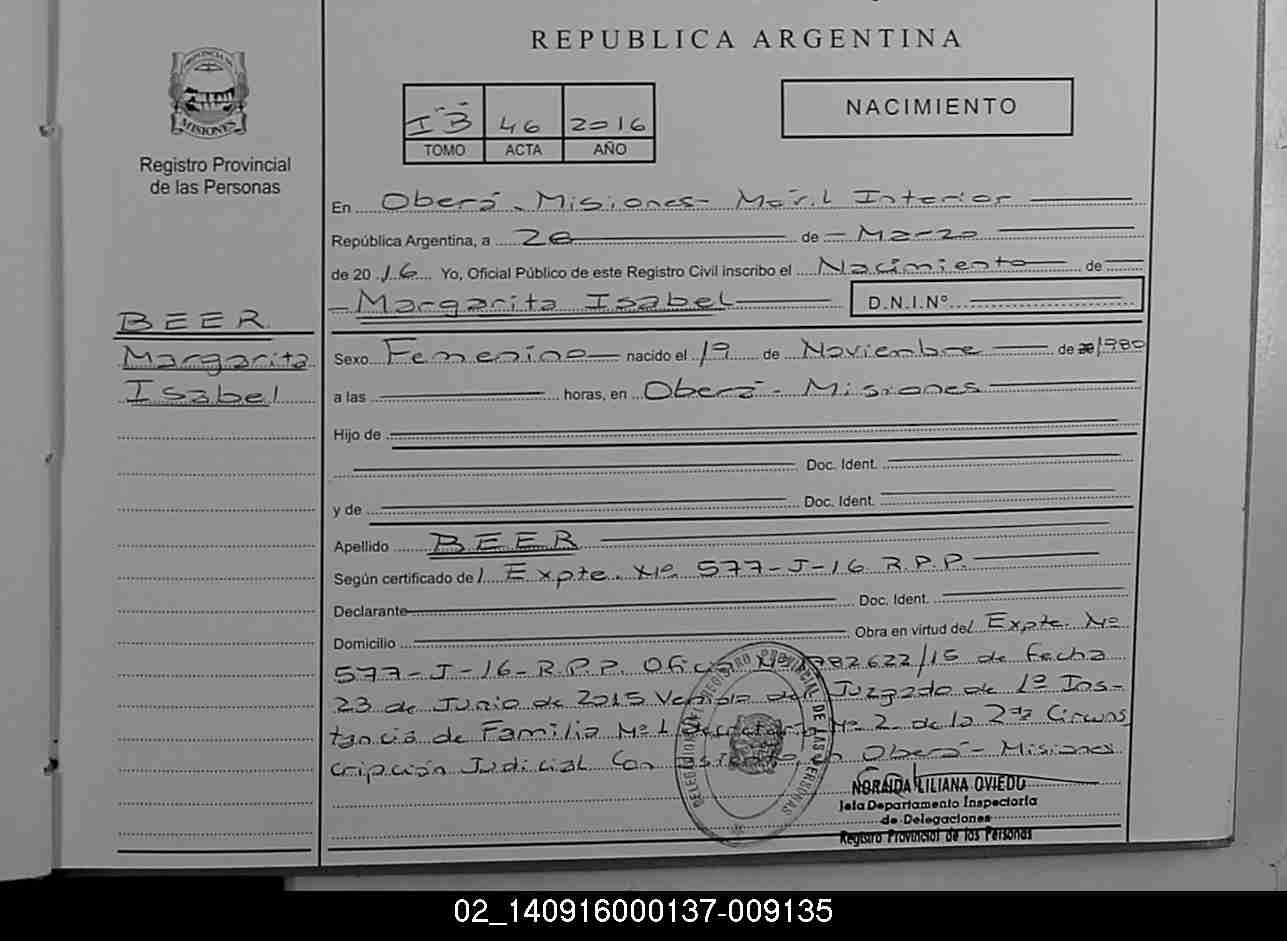 REPUBLICA ARGENTINA
PROVINCIA DE MISIONES
Registro Provincial
de las Personas
I"B" 46 2016
TOMO ACTA AÑO
NACIMIENTO
BEER
Margarita
Isabel
En Oberá - Misiones - Móvil Interior
República Argentina, a 26 de Marzo
de 2016 Yo, Oficial Público de este Registro Civil inscribo el Nacimiento de
Margarita Isabel D.N.I.Nº
Sexo Femenino nacido el 19 de Noviembre de 1980
a las horas, en Oberá - Misiones
Hijo de
Doc. Ident.
y de Doc. Ident.
Apellido BEER
Según certificado del Expte. Nº 577-J-16 R.P.P.
Declarante Doc. Ident.
Domicilio Obra en virtud del Expte. Nº
577-J-16-R.P.P. Oficio Nº 1782622/15 de fecha
23 de Junio de 2015 Venido del Juzgado de 1º Ins-
tancia de Familia Nº 1 Secretaría Nº 2 de la 2da Circuns
cripción Judicial Con asiento en Oberá - Misiones
REGISTRO PROVINCIAL DE LAS PERSONAS
NORAIDA LILIANA OVIEDO
Jefa Departamento Inspectoría
de Delegaciones
Registro Provincial de las Personas
02_140916000137-009135